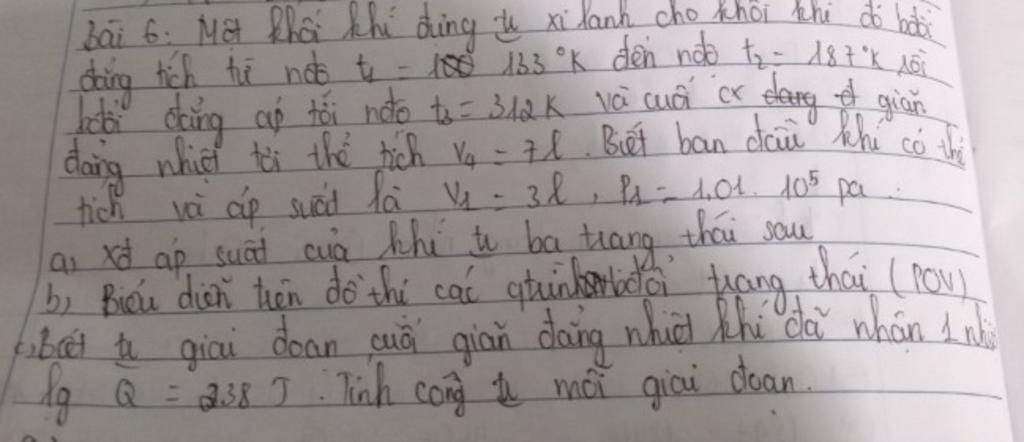 Bài 6: Một khối khí đựng tr xi lanh cho khối khí đó bđổi
đẳng tích từ nđộ t1 = 133 °K đến nđộ t2 = 187 °K rồi
bđổi đẳng áp tới nđộ t3 = 312K và cuối cx giãn
đẳng nhiệt tới thể tích V4 = 7l. Biết ban đầu khí có thể
tích và áp suất là V1 = 3l, P1 = 1,01. 10⁵ pa.
a, xđ áp suất của khí tr ba trạng thái sau
b, Biểu diễn trên đồ thị các qtrình bđổi trạng thái (POV)
c, Biết tr giai đoạn cuối giãn đẳng nhiệt khí đã nhận 1 nhiệt
lg Q = 238 J. Tính công tr mỗi giai đoạn.